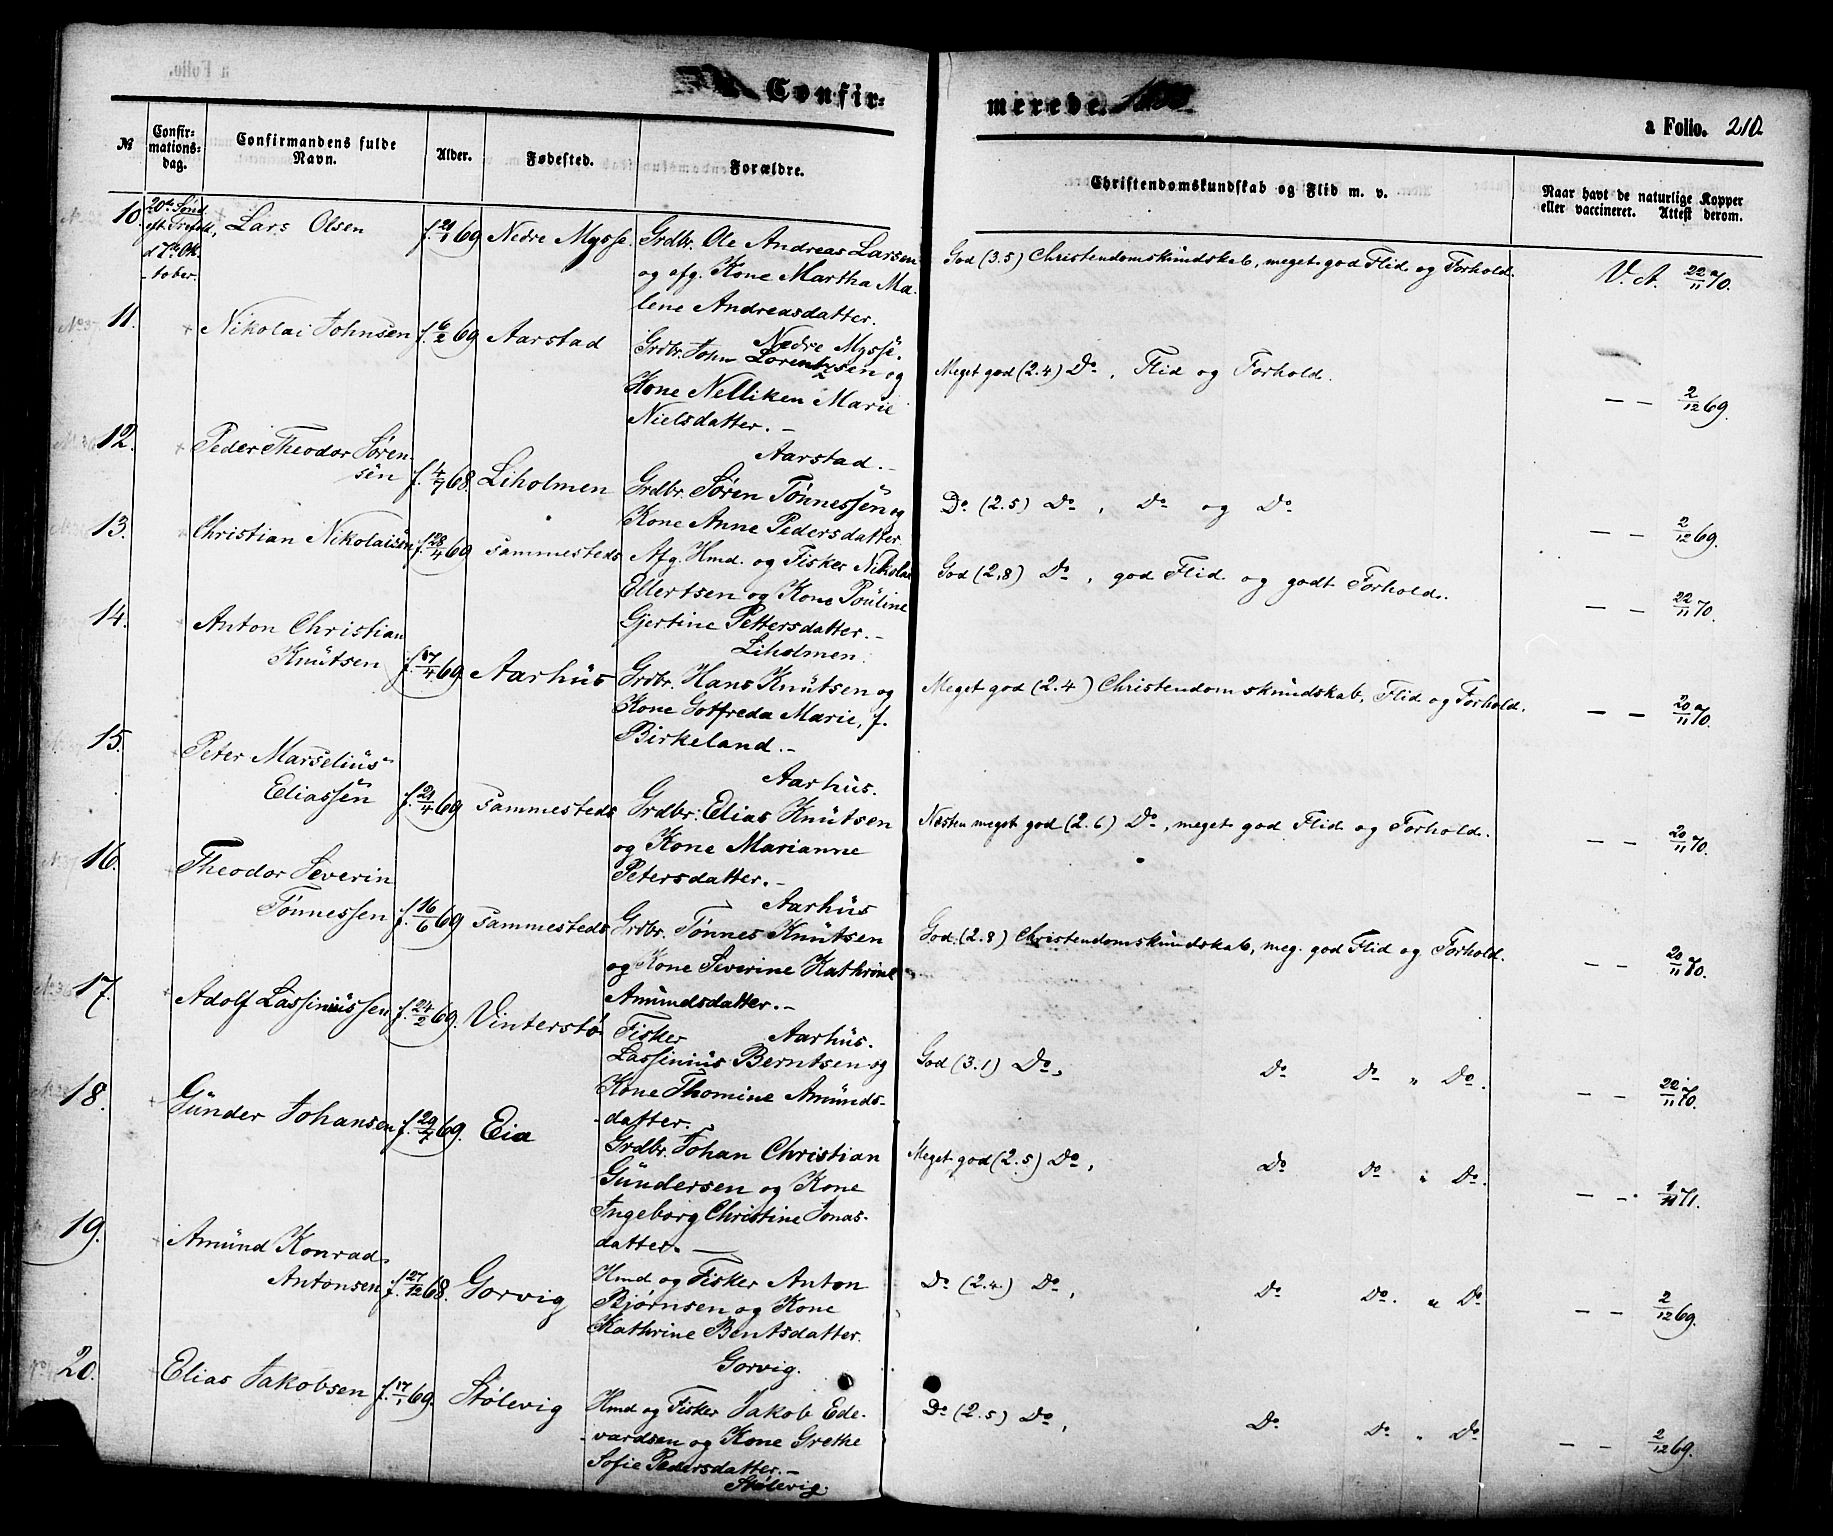 Confir=
merede
a Folio. 210
№
Confir=
mations=
dag.
Confirmandens fulde
Navn.
Alder.
Fødested.
Forældre.
Christendomskundskab og Flid m. v.
Naar havt de naturlige Kopper
eller vaccineret. Attest derom.
10. 20de Sønd. Lars Olsen f. 21/1 69 Nedre Mysse. Grdbr. Ole Andreas Larsen
eft. Trefold. og afg. Kone Martha Ma-
d 7de Ok- lene Andreasdatter.
tober. Nedre Mysse.
God (3.5) Christendomskundskab, meget god Flid og Forhold. V. A. 22/11 70.
11. Nikolai Johnsen f. 6/2 69 Aarstad Grdbr. John Lorentzsen og
Kone Nelliken Marie
Nielsdatter. –
Aarstad. –
Meget god (2.4) Do, Flid og Forhold. — — 2/12 69.
12. Peder Theodor Søren-
sen f. 4/7 68. Liholmen Grdbr. Søren Tønnessen og
Kone Anne Pedersdatter.
Do (2.5) Do, Do og Do — — 2/12 69.
13. Christian Nikolaisen f. 28/4 69 sammesteds Afg. Hmd. og Fisker Nikolai
Ellertsen og Kone Pouline
Gjertine Pettersdatter. –
Liholmen.
God (2,8) Do, god Flid og godt Forhold. — — 22/11 70.
14. Anton Christian
Knutsen f. 17/4 69 Aarhus Grdbr. Hans Knutsen og
Kone Gotfreda Marie, f.
Birkeland. –
Aarhus.
Meget god (2.4) Christendomskundskab, Flid og Forhold. — — 20/11 70.
15. Peter Marselius
Eliassen f. 21/4 69 sammesteds Grdbr. Elias Knutsen
og Kone Marianne
Petersdatter. –
Aarhus
Næsten meget god (2.6) Do, meget god Flid og Forhold. — — 20/11 70.
16. Theodor Severin
Tønnessen f. 16/6 69 sammesteds Grdbr. Tønnes Knutsen
og Kone Severine Kathrine
Amundsdatter. –
Aarhus.
God (2.8) Christendomskundskab, meg. god Flid og Forhold. — — 20/11 70.
17. Adolf Lassiniussen f. 24/2 69. Vinterstø Fisker
Lassinius Berntsen og
Kone Thomine Amunds-
datter.
God (3.1) Do, Do Do " Do. — — 22/11 70.
18. Gunder Johansen f. 29/7 69. Eia Grdbr. Johan Christian
Gundersen og Kone
Ingeborg Christine Jonas-
datter. —
Meget god (2.5) Do, Do Do " Do. — — 1/11 71.
19. Amund Konrad
Antonsen f. 27/12 68. Gorvig Hmd og Fisker Anton
Bjørnsen og Kone
Kathrine Bentsdatter.
Gorvig.
Do (2.4.) Do, Do Do. " Do — — 2/12 69.
20. Elias Jakobsen f. 17/1 69. Stølevig Hmd og Fisker Jakob Ede-
vardsen og Kone Grethe
Sofie Pedersdatter. –
Stølevig.
Do (2.5) Do, Do Do " Do — — 2/12 69.